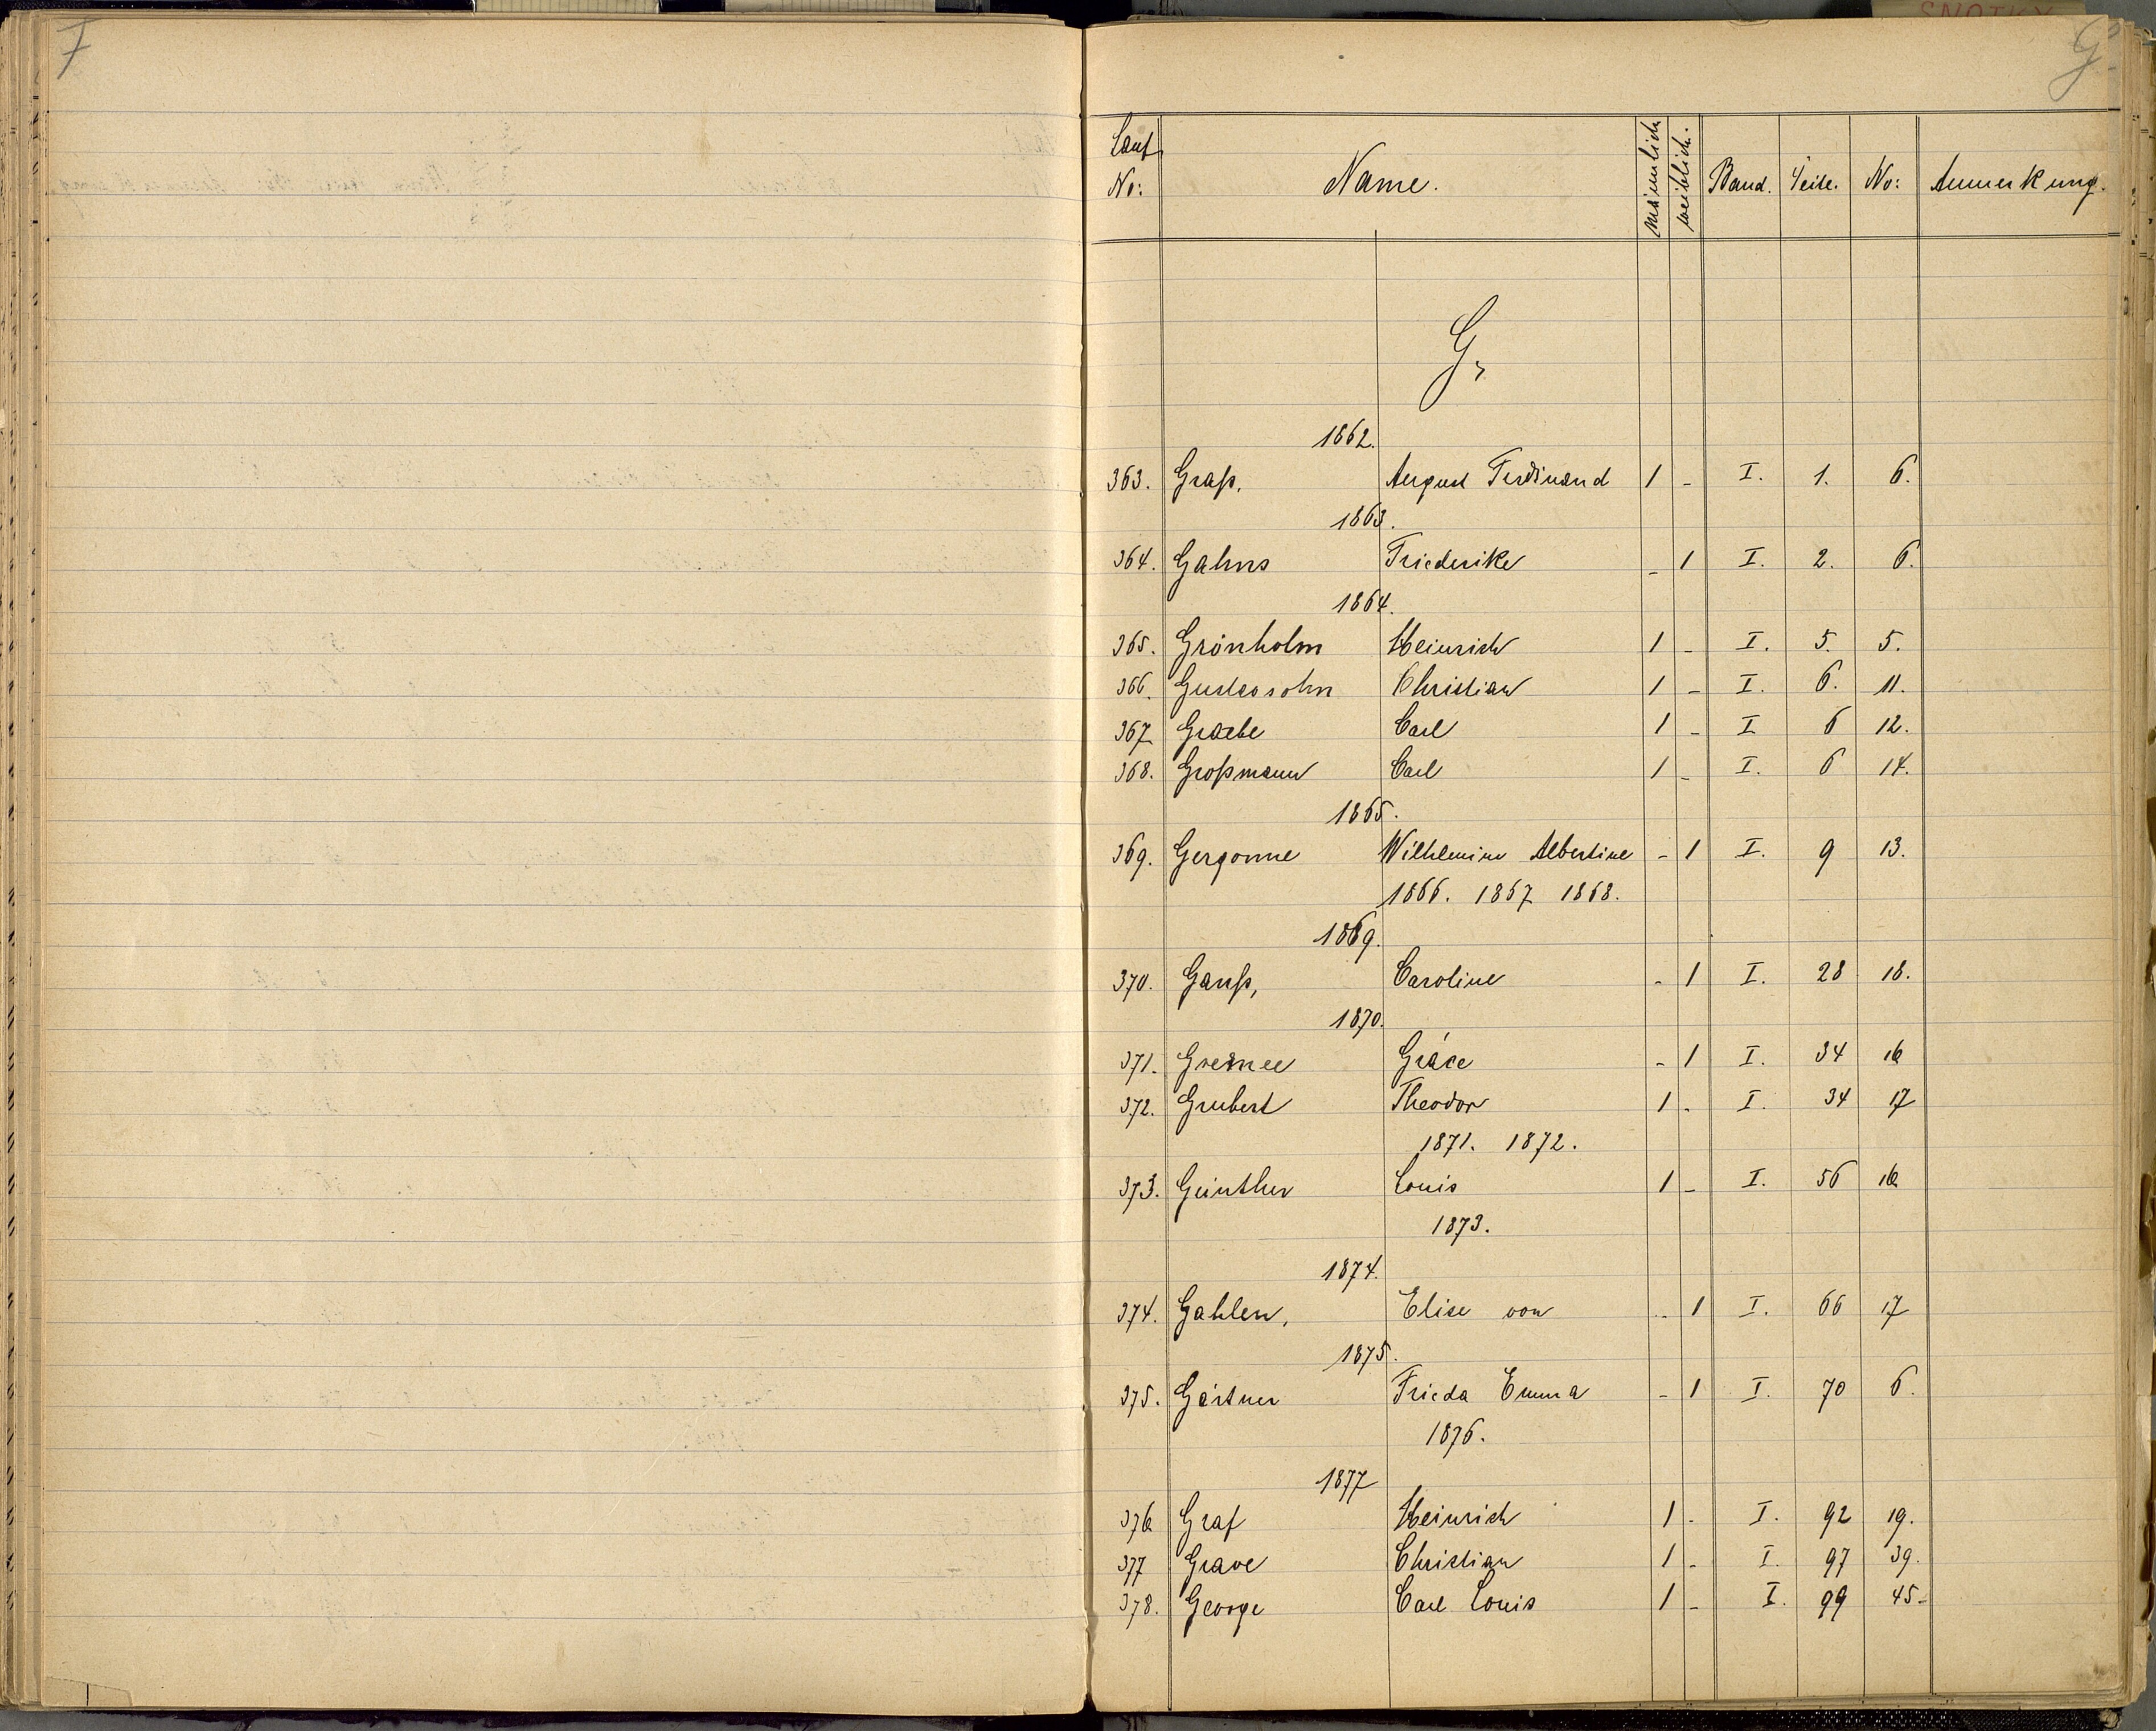 F
G
Lauf No: Name. männlich weiblich. Band. Seite. No: Anmerkung.
G.
1862.
363. Graß, August Ferdinand 1 - I. 1. 6.
1863.
364. Gahns Friederike - 1 I. 2. 6.
1864.
365. Grönholm Heinrich 1 - I. 5. 5.
366. Gustavsohn Christian 1 - I. 6. 11.
367 Graebe Carl 1 - I 6 12.
368. Großmann Carl 1 - I. 6 14.
1865.
369. Gergonne Wilhlemine Albertine - 1 I. 9 13.
1866. 1867 1868.
1869.
370. Ganß, Caroline - 1 I. 28 18.
1870.
371. Grace - 1 I. 34 16
372. Grubert Theodor 1 - I. 34 17
1871. 1872.
373. Günther Louis 1 - I. 56 16
1873.
1874.
374. Gahlen, Elise von - 1 I. 66 17
1875.
375. Gärtner Frieda Emma - 1 I. 70 6.
1876.
1877
376 Graf Heinrich 1 - I. 92 19.
377 Grave Christian 1 - I. 97 39.
378. George Carl Louis 1 - I. 99 45-